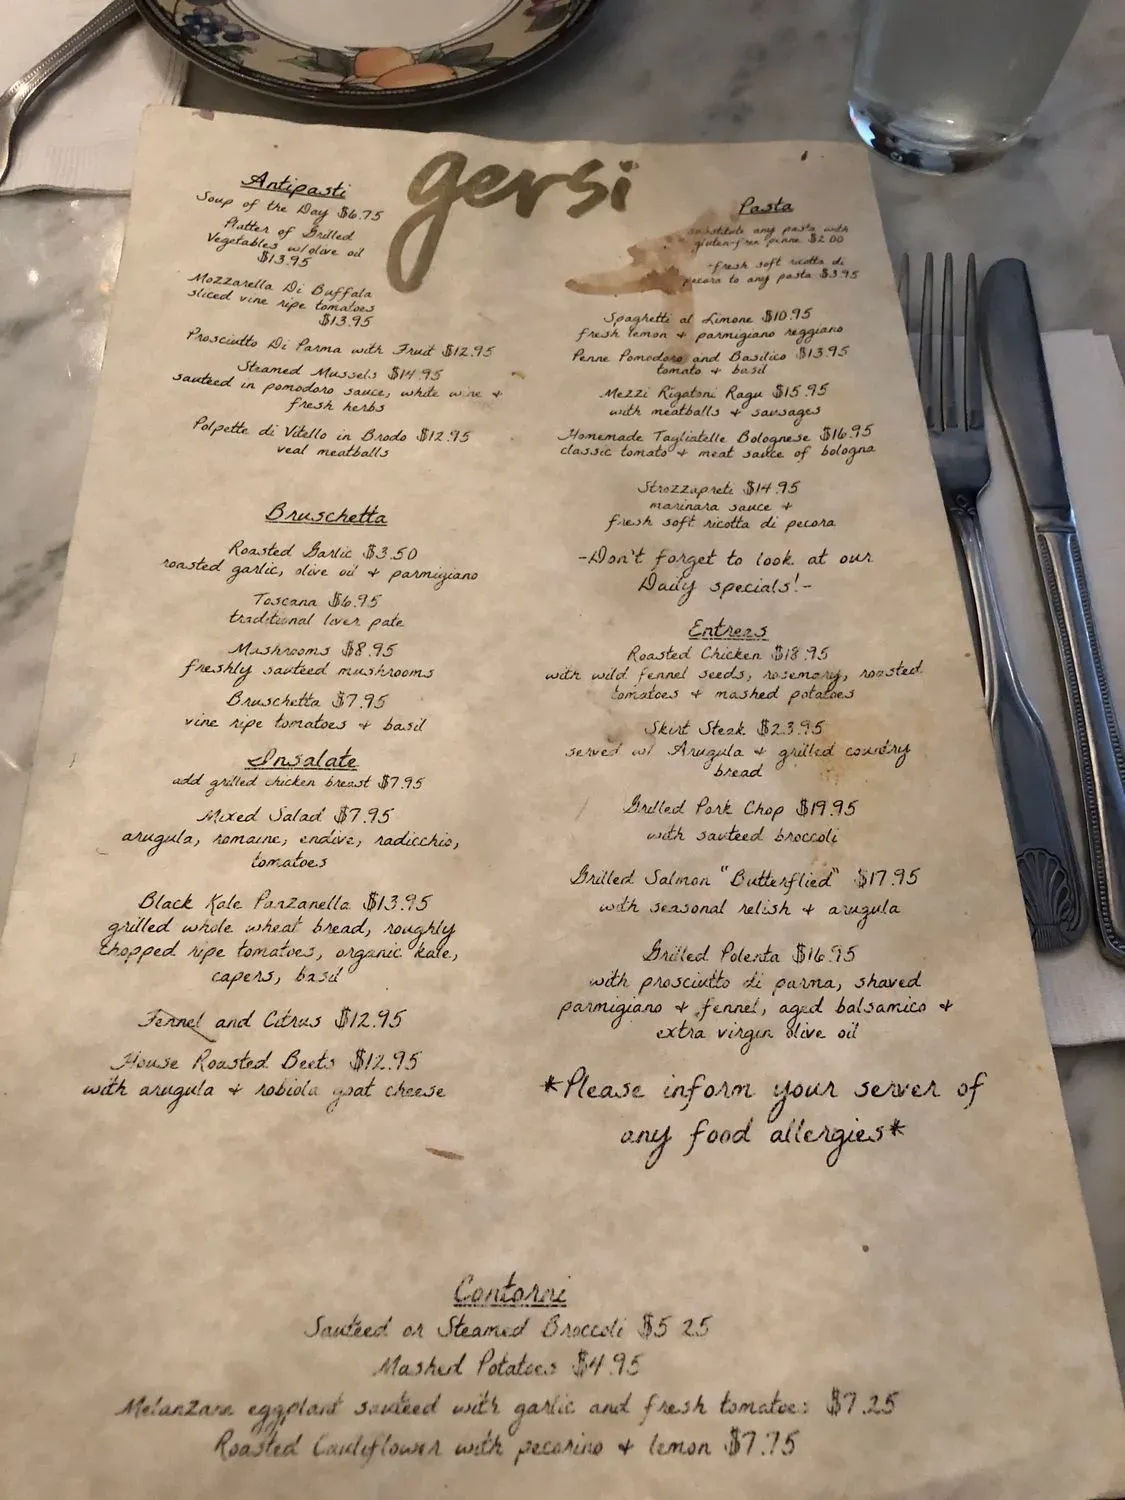 gersi
Antipasti
Soup of the Day $6.75
Platter of Grilled
Vegetables w/olive oil
$13.95
Mozzarella Di Buffala
sliced vine ripe tomatoes
$13.95
Prosciutto Di Parma with Fruit $12.95
Steamed Mussels $14.95
sauteed in pomodoro sauce, white wine +
fresh herbs
Polpette di Vitello in Brodo $12.95
veal meatballs
Bruschetta
Roasted Garlic $3.50
roasted garlic, olive oil + parmigiano
Toscana $6.95
traditional liver pate
Mushrooms $8.95
freshly sauteed mushrooms
Bruschetta $7.95
vine ripe tomatoes + basil
Insalate
add grilled chicken breast $7.95
Mixed Salad $7.95
arugula, romaine, endive, radicchio,
tomatoes
Black Kale Panzanella $13.95
grilled whole wheat bread, roughly
chopped ripe tomatoes, organic kale,
capers, basil
Fennel and Citrus $12.95
House Roasted Beets $12.95
with arugula + robiola goat cheese
Pasta
substitute any pasta with
gluten-free penne $2.00
-fresh soft ricotta di
pecora to any pasta $3.95
Spaghetti al Limone $10.95
fresh lemon + parmigiano reggiano
Penne Pomodoro and Basilico $13.95
tomato + basil
Mezzi Rigatoni Ragu $15.95
with meatballs + sausages
Homemade Tagliatelle Bolognese $16.95
classic tomato + meat sauce of bologna
Strozzapreti $14.95
marinara sauce +
fresh soft ricotta di pecora
-Don't forget to look at our
Daily specials!-
Entrees
Roasted Chicken $18.95
with wild fennel seeds, rosemary, roasted
tomatoes + mashed potatoes
Skirt Steak $23.95
served w/ Arugula + grilled country
bread
Grilled Pork Chop $19.95
with sauteed broccoli
Grilled Salmon "Butterflied" $17.95
with seasonal relish + arugula
Grilled Polenta $16.95
with prosciutto di parma, shaved
parmigiano + fennel, aged balsamico +
extra virgin olive oil
*Please inform your server of
any food allergies*
Contorni
Sauteed or Steamed Broccoli $5.25
Mashed Potatoes $4.95
Melanzane eggplant sauteed with garlic and fresh tomatoes $7.25
Roasted Cauliflower with pecorino + lemon $7.75